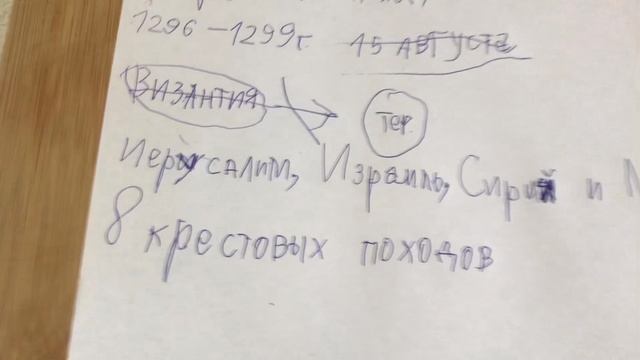 1296 – 1299г. 15 АВГУСТЕ
ВИЗАНТИЯ тер.
Иерусалим, Израиль, Сирий и
8 крестовых походов